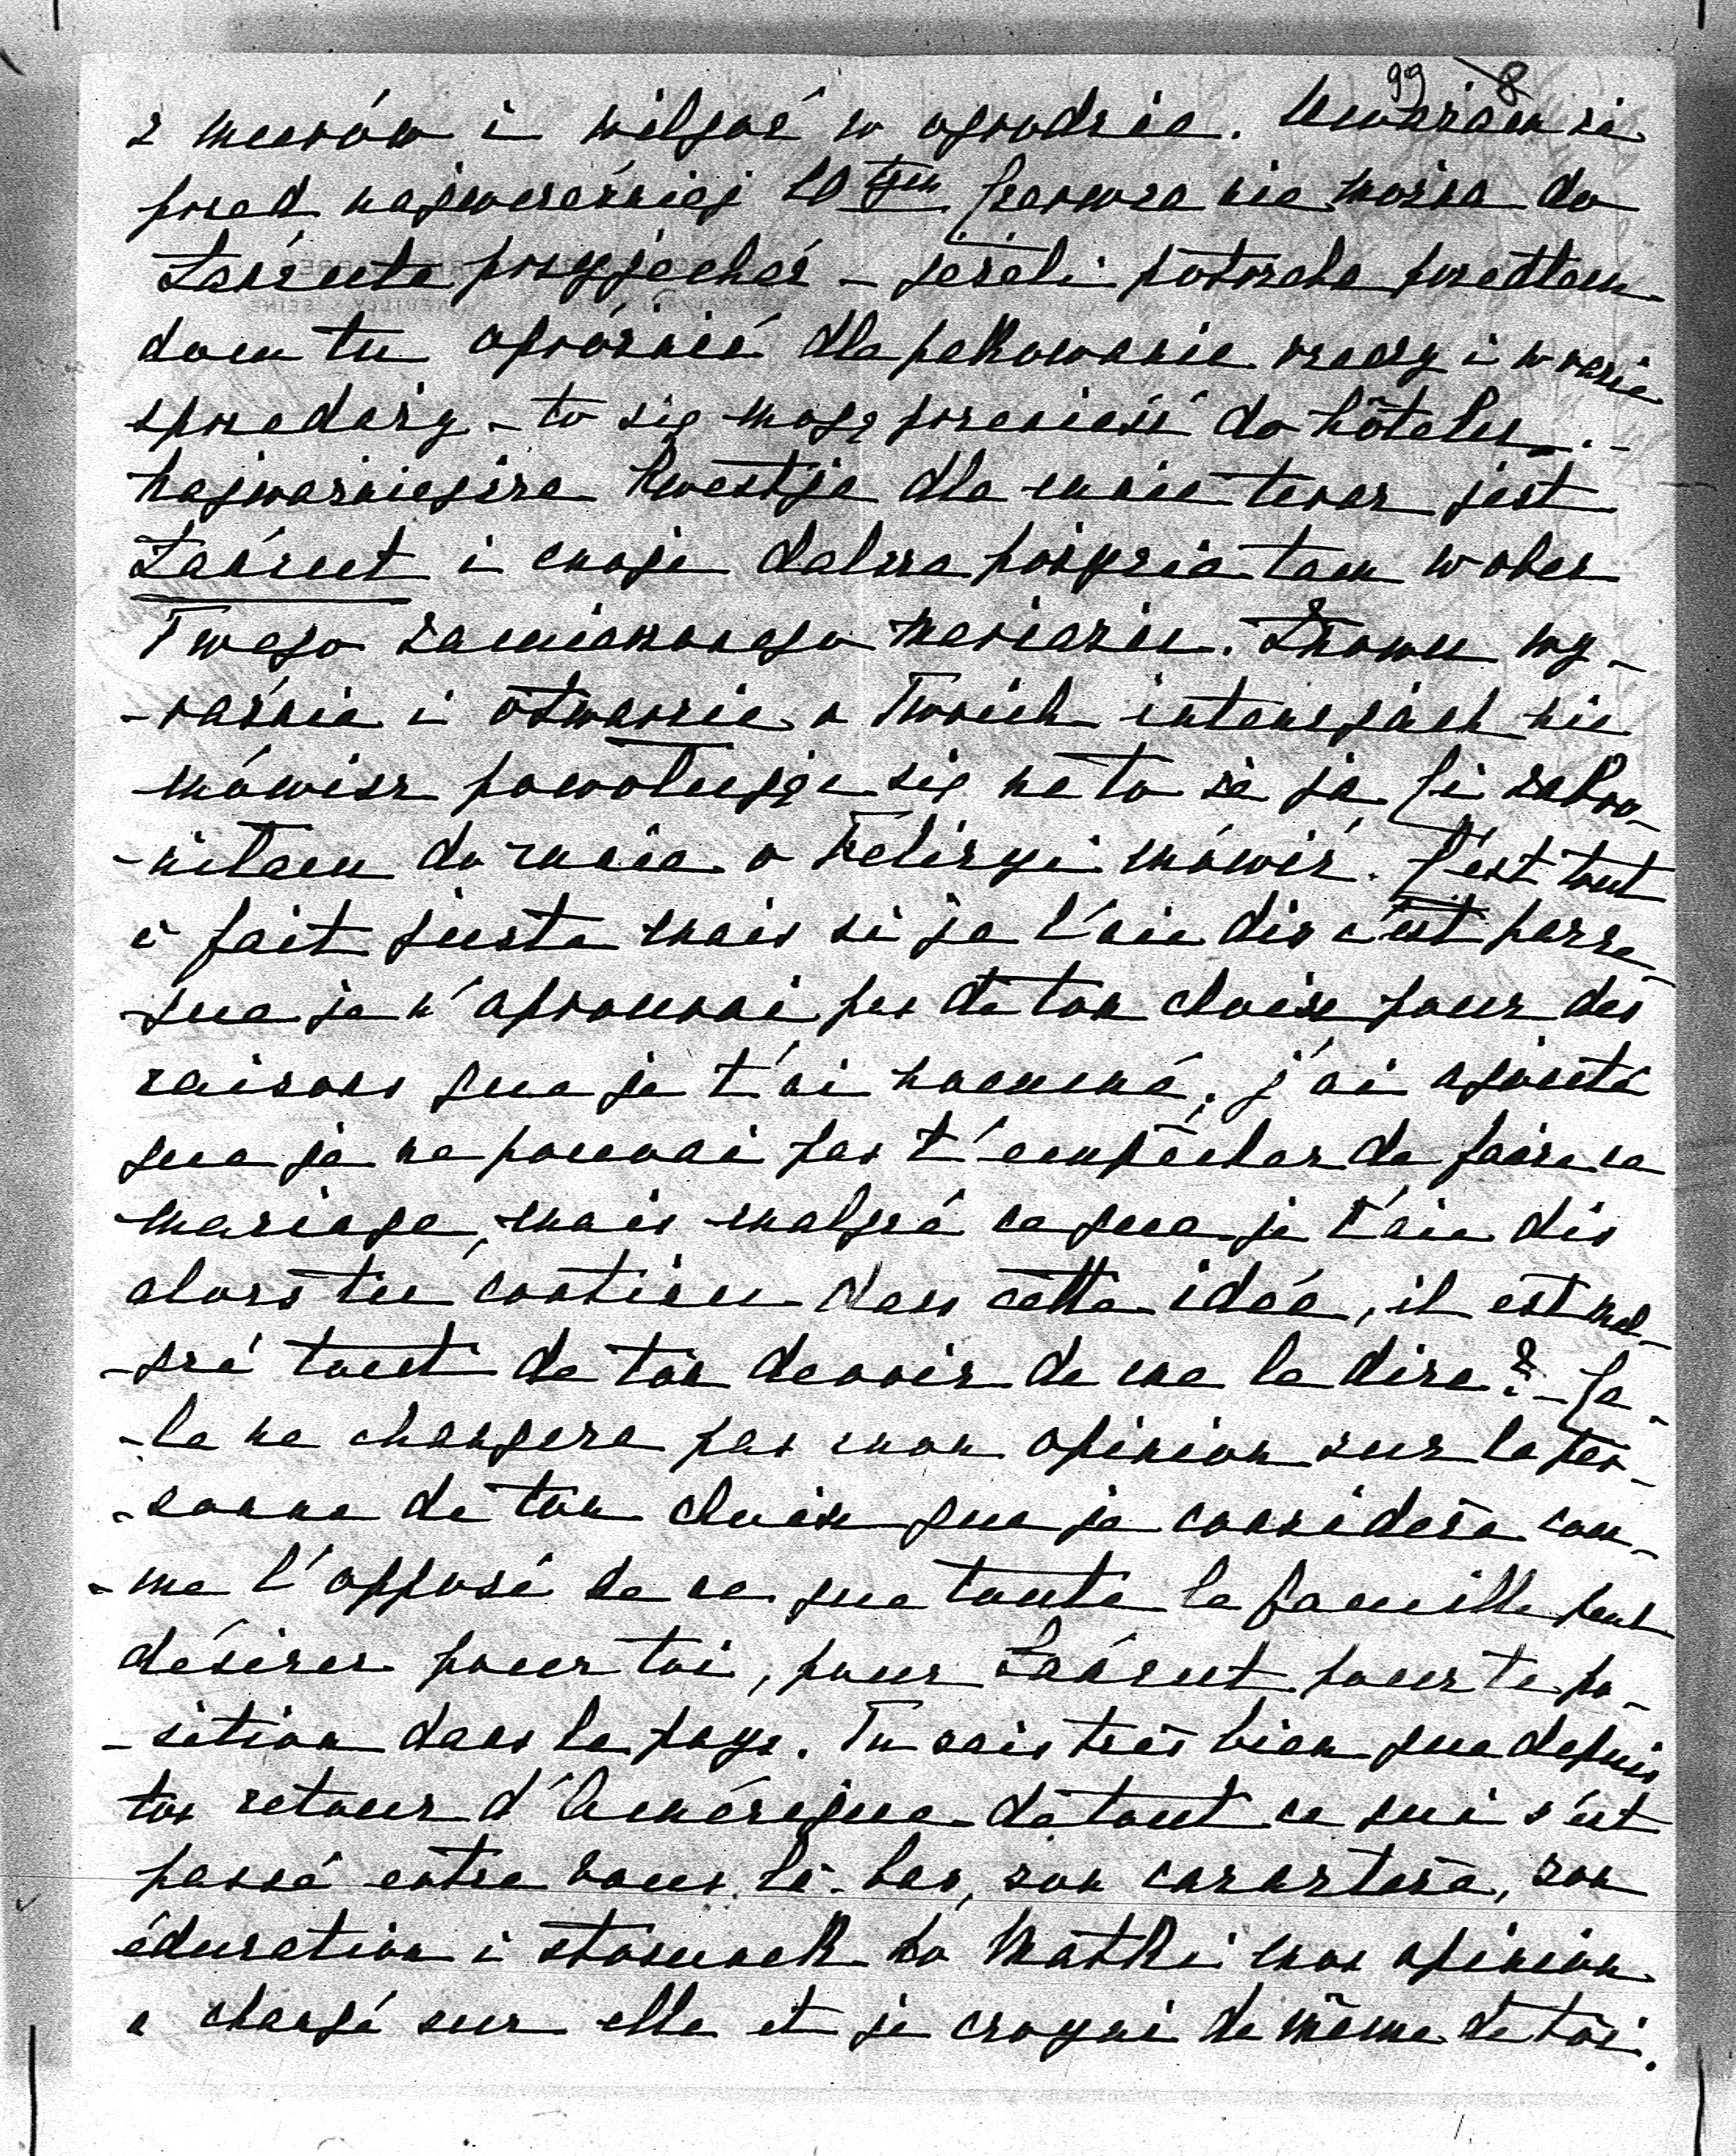 99 8
z murów i wilgoć w ogrodzie. Uważam że
przed najwcześniej 10tym czerwca nie można do
Łańcuta przyjechać – jeżeli potrzeba przedtem
dom tu opróżnić dla pakowania rzeczy i w razie
sprzedaży – to się mogę przenieść do hôtelu. –
Najważniejsza kwestja dla mnie teraz jest
Łańcut i moja dalsza pozycja tam wobec
Twego zamierzonego mariażu. Znowu wy-
-raźnie i otwarcie o Twoich intencjach nie
mówisz powołując się na to że ja Ci zabro-
-niłam do mnie o Felicyi mówić. C'est tout
à fait juste mais si je t'aie dis c'est parce
que je n'aprouvai pas de ton choix pour des
raisons que je t'ai nommé; j'ai ajouté
que je ne pouvai pas t'empêcher de faire ce
mariage, mais malgré ce que je t'aie dis
alors tu continu dans cette idée, il est mal-
-gré tout de ton devoir de me le dire? – Ce-
-la ne changera pas mon opinion sur la per-
-sonne de ton choix que je considère com-
-me l'opposé de ce que toute la famille peut
désirer pour toi, pour Łańcut pour ta po-
-sition dans le pays. Tu sais très bien que depuis
ton retour d'Amérique de tout ce qui s'est
passé entre vous là-bas, son caractère, son
éducation i stosunek do Matki mon opinion
a changé sur elle et je croyai de même de toi.